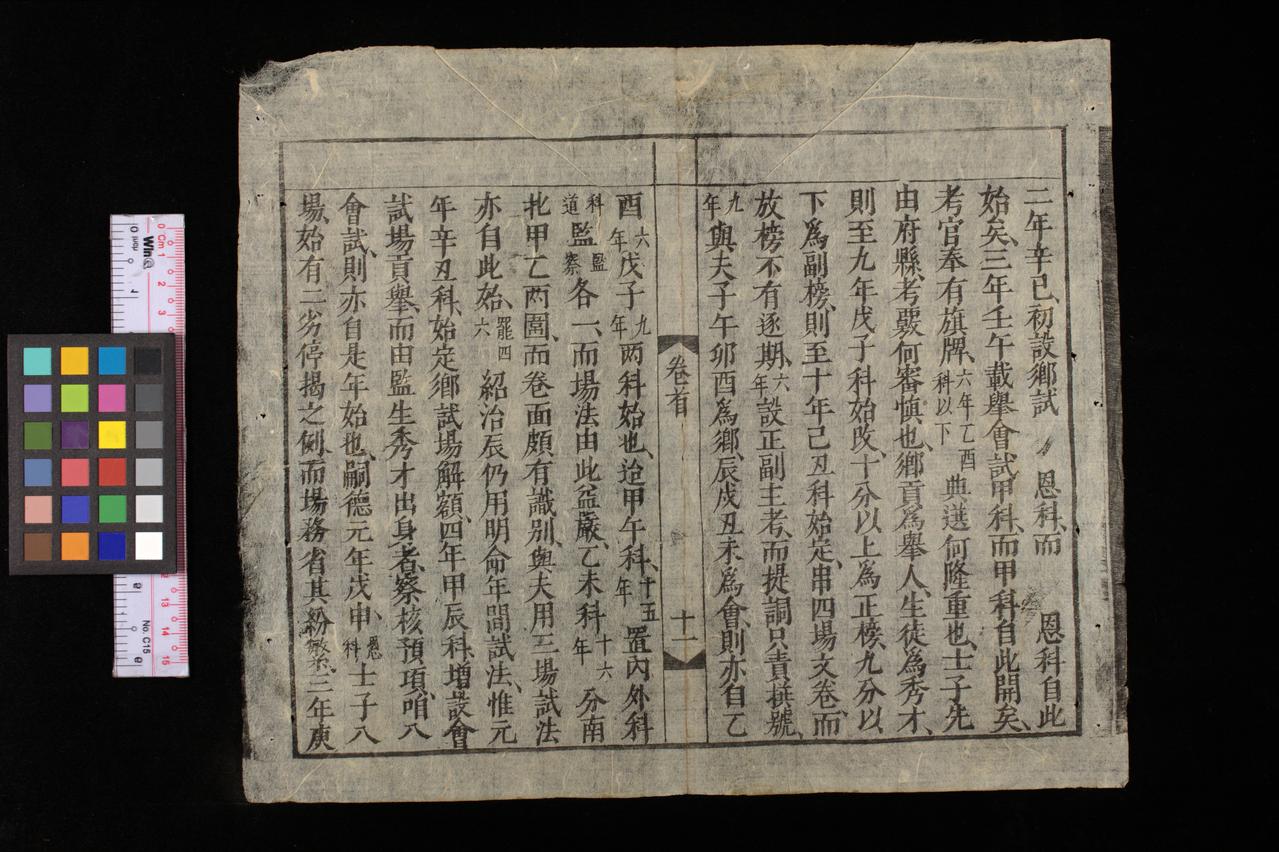 二年辛巳、初設鄉試〃恩科、而　恩科自此
始矣、三年壬午載舉會試甲科、而甲科自此開矣、
考官奉有旗牌、六年乙酉科以下典選何隆重也、士子先
由府縣考覈何審慎也、鄉貢為舉人、生徒為秀才、
則至九年戊子科始改、十分以上為正榜、九分以
下為副榜、則至十年己丑科始定、串四場文卷、而
放榜不有逐期、六年設正副主考、而提調只責横號、
九年與夫子午卯酉為鄉、辰戌丑未為會、則亦自乙
卷首
十一
酉六年戊子九年兩科始也、迨甲午科、十五年置內外科
科監道監察各一、而場法由此益嚴、乙未科十六年分南
北甲乙兩圍、而卷面頗有識別、與夫用三場試法
亦自此始、罷四六紹治辰仍用明命年間試法、惟元
年辛丑科、始定鄉試場解額、四年甲辰科、增設會
試場貢舉、而由監生秀才出身者、察核預項、咱八
會試、則亦自是年始也、嗣德元年戊申、恩科士子八
場、始有二劣停揭之例、而場務省其紛繁、三年庚
Win
No. C15